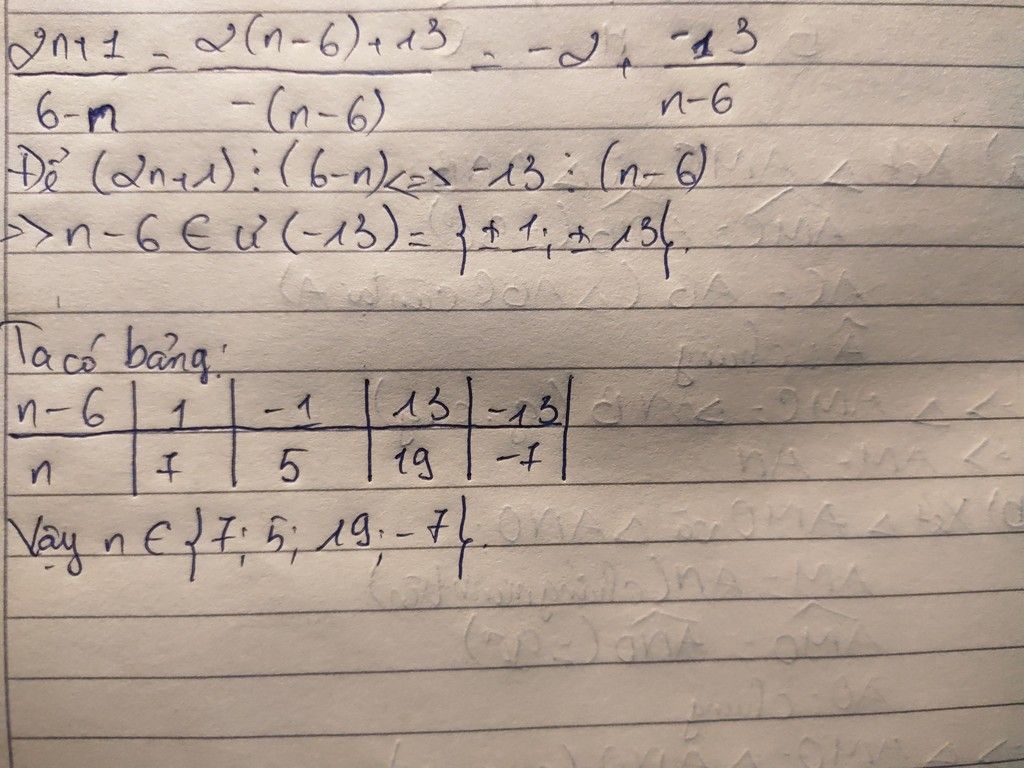 2n+1 / 6-n = 2(n-6)+13 / -(n-6) = -2 + -13 / n-6
Để (2n+1) ⋮ (6-n) <=> -13 ⋮ (n-6)
=> n-6 ∈ Ư(-13) = {±1; ±13}.
Ta có bảng:
n-6 | 1 | -1 | 13 | -13
n | 7 | 5 | 19 | -7
Vậy n ∈ {7; 5; 19; -7}.